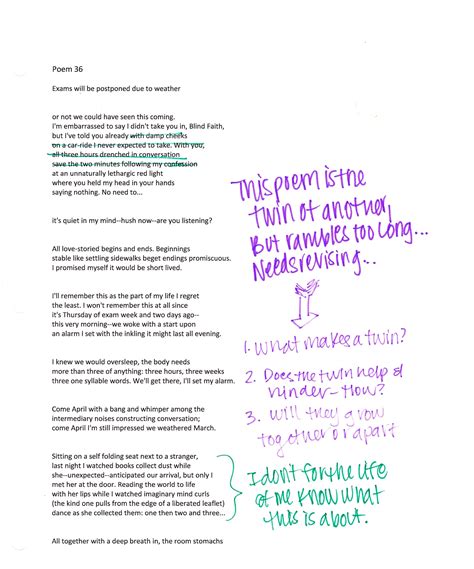 Poem 36
Exams will be postponed due to weather
or not we could have seen this coming.
I'm embarrassed to say I didn't take you in, Blind Faith,
but I've told you already with damp cheeks
on a car-ride I never expected to take. With you,
all three hours drenched in conversation
save the two minutes following my confession
at an unnaturally lethargic red light
where you held my head in your hands
saying nothing. No need to...
it's quiet in my mind--hush now--are you listening?
All love-storied begins and ends. Beginnings
stable like settling sidewalks beget endings promiscuous.
I promised myself it would be short lived.
I'll remember this as the part of my life I regret
the least. I won't remember this at all since
it's Thursday of exam week and two days ago--
this very morning--we woke with a start upon
an alarm I set with the inkling it might last all evening.
I knew we would oversleep, the body needs
more than three of anything: three hours, three weeks
three one syllable words. We'll get there, I'll set my alarm.
Come April with a bang and whimper among the
intermediary noises constructing conversation;
come April I'm still impressed we weathered March.
Sitting on a self folding seat next to a stranger,
last night I watched books collect dust while
she--unexpected--anticipated our arrival, but only I
met her at the door. Reading the world to life
with her lips while I watched imaginary mind curls
(the kind one pulls from the edge of a liberated leaflet)
dance as she collected them: one then two and three...
All together with a deep breath in, the room stomachs
This poem is the
twin of another,
But rambles too long...
Needs revising...
1. What makes a twin?
2. Does the twin help &
hinder-How?
3. Will they grow
together or apart
I don't for the life
of me know what
this is about.